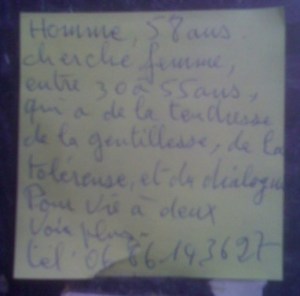 Homme, 58 ans.
cherche femme,
entre 30 à 55 ans,
qui a de la tendresse
de la gentillesse, de la
toléreuse, et du dialogue
Pour vivre à deux
Voir plus-
tel: 06 66-143627